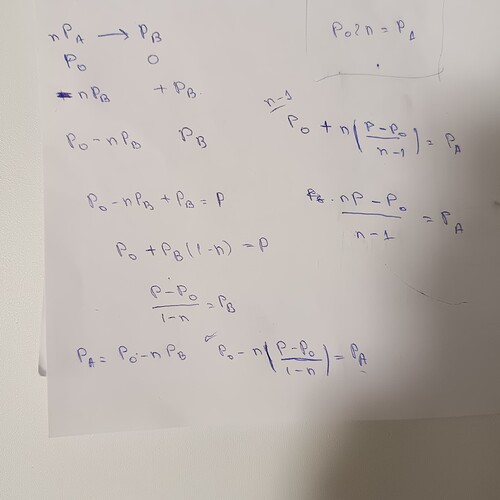 nP_A → P_B
P_0 0
- nP_B + P_B.
P_0 - nP_B P_B
P_0 - nP_B + P_B = P
P_0 + P_B (1-n) = P
\frac{P-P_0}{1-n} = P_B
P_A = P_0 - nP_B P_0 - n(\frac{P-P_0}{1-n}) = P_A
= P_A
n-1
P_0 + n(\frac{P-P_0}{n-1}) = P_A
\frac{nP-P_0}{n-1} = P_A